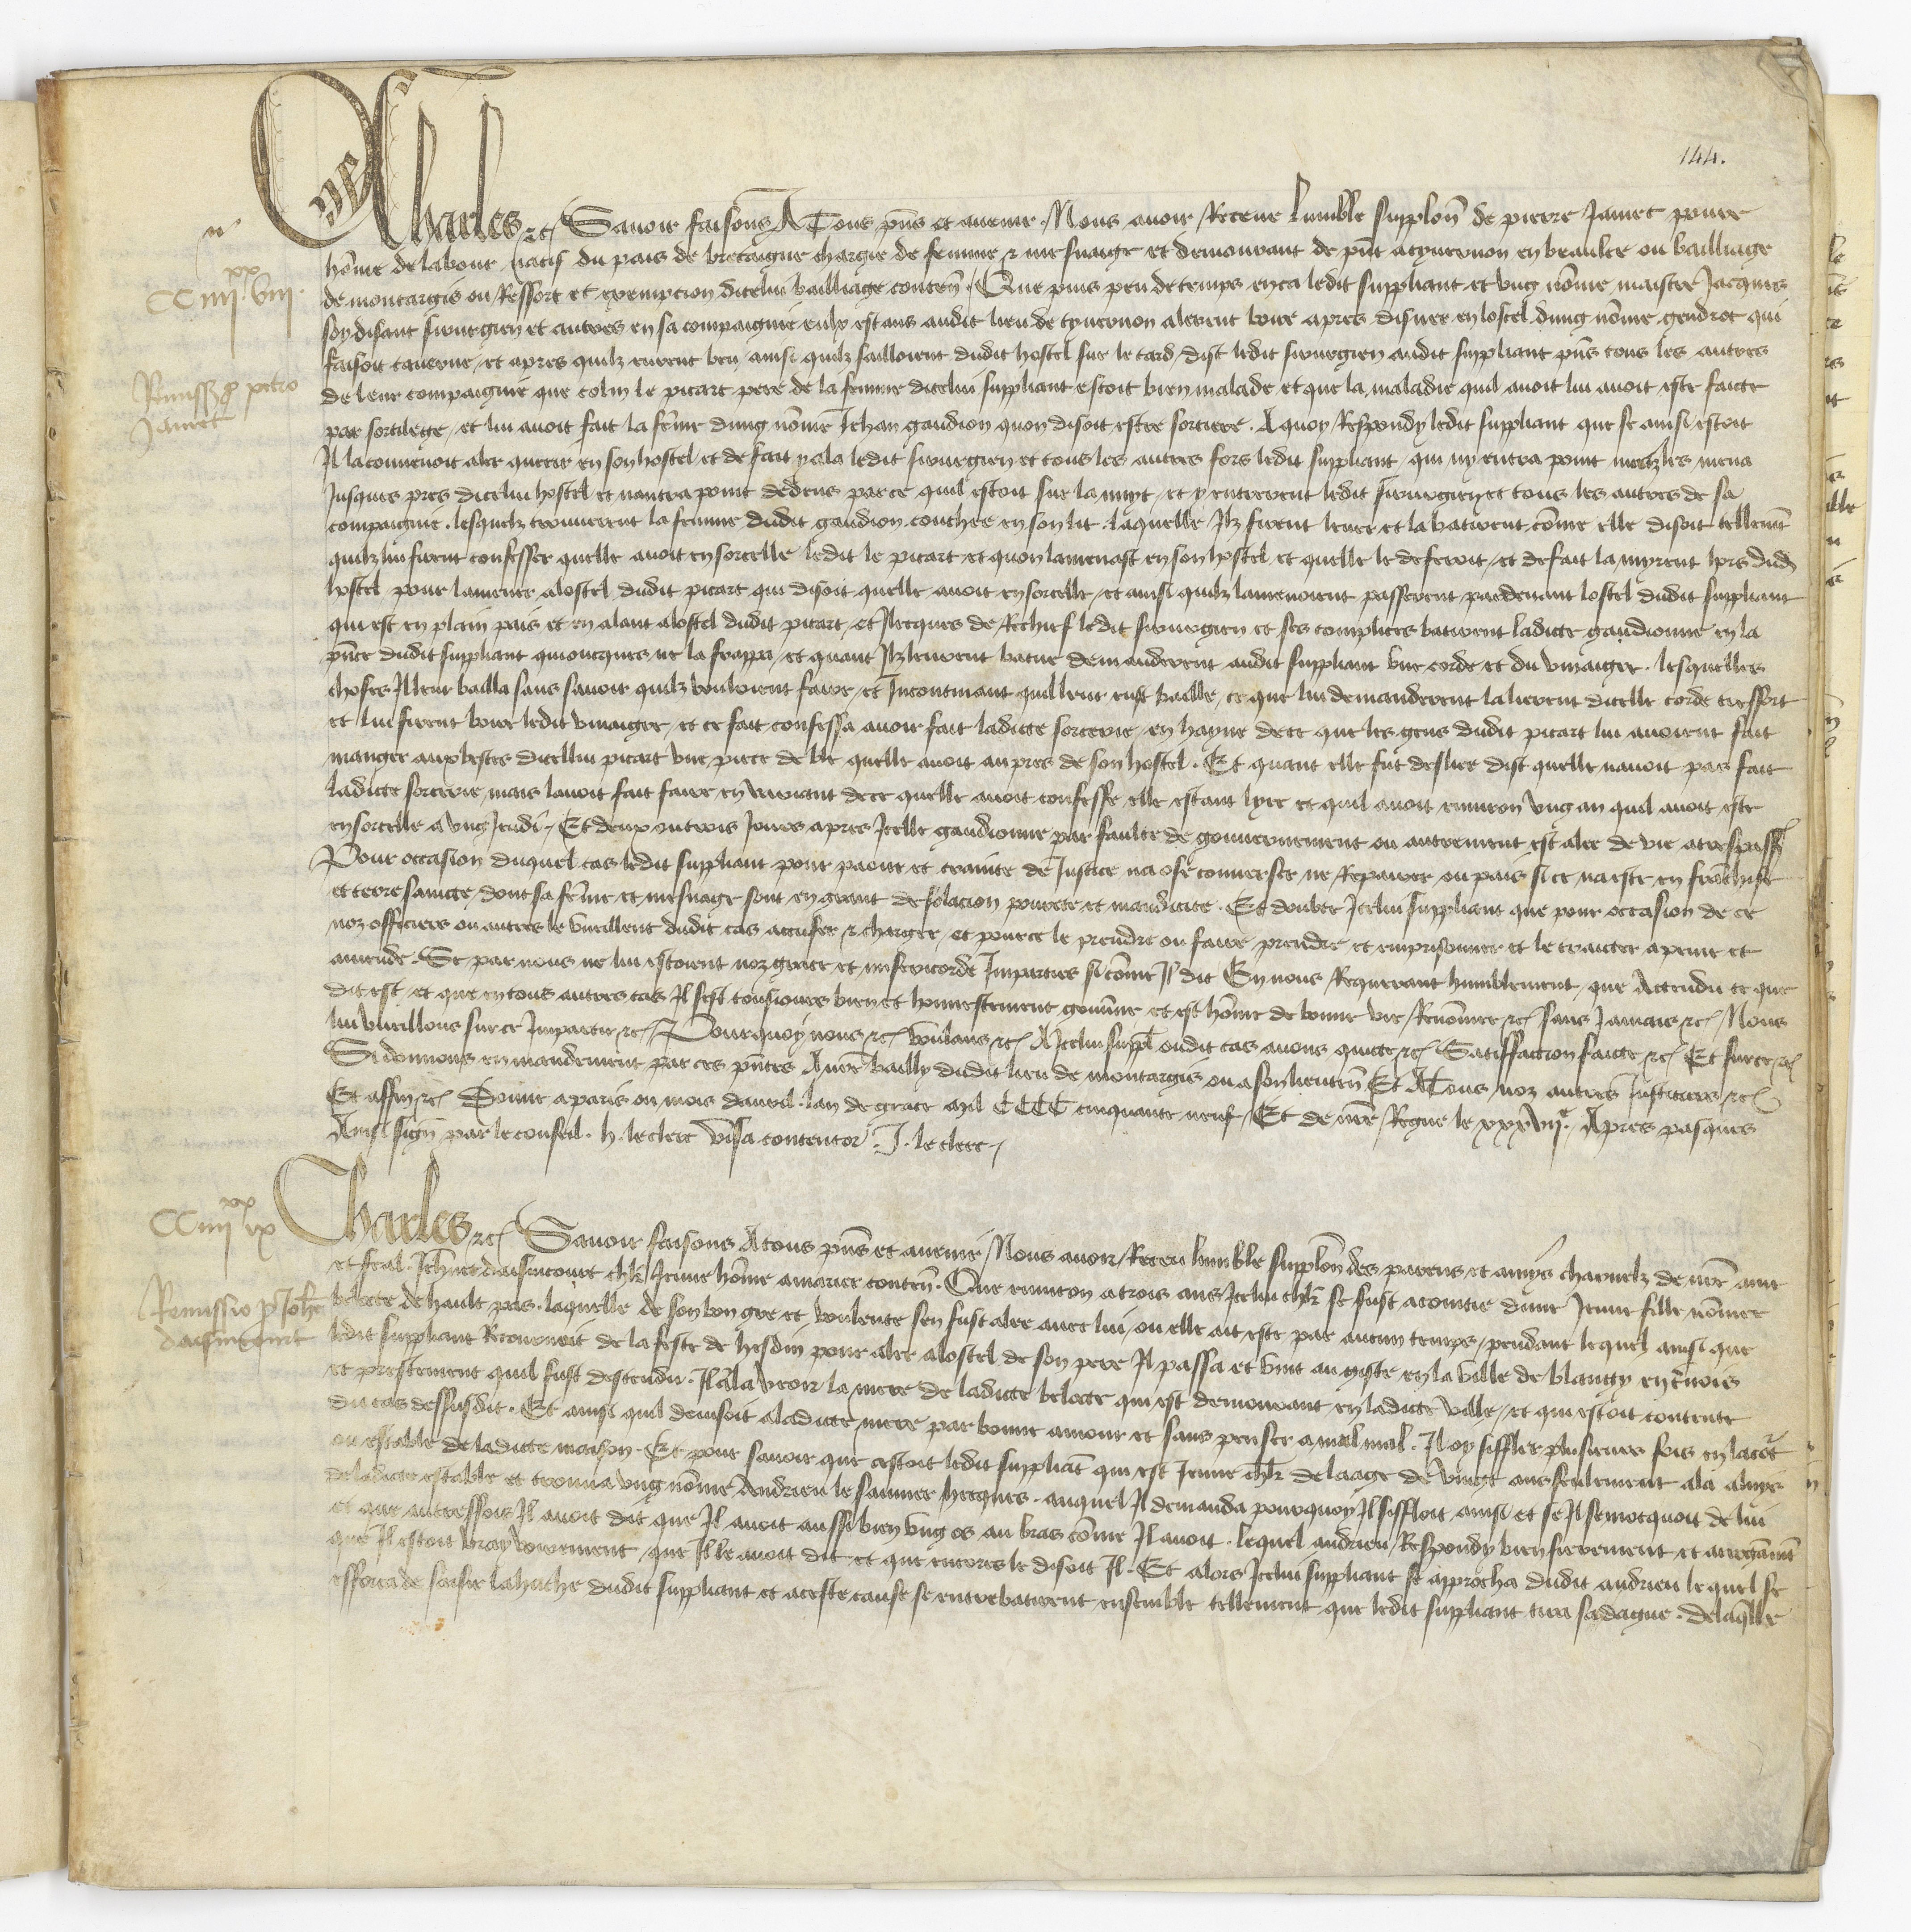 144.
Charles etc Savoir faisons A Tous pñs et avenir Nous avoir Receue lumble supplon̄ de pierre Jamet povre
hōme de labour natif du pais de bretaigne chargie de femme & mesnaige et demourant de pñt a tyvernon en beaulce ou bailliage
CC iiii xx viii
de montargis ou Ressort et exempcion dicelui bailliage conten̄ Que puis peu de temps enca ledit suppliant et ung nōme maistre Jacques
soy disant sirurgien et autres en sa compaignie eulx estans audit lieu de tyvernon alerent boire apres disner en lostel dung nōme gendrot qui
faisoit taverne et apres quilz eurent beu ainsi quilz sailloient dudit hostel sur le tard dist ledit sirurgien audit suppliant pñs tous les autres
Remiss p petro
Jamet
de leur compaignie que colin le picart pere de la femme dicelui suppliant estoit bien malade et que la maladie quil avoit lui avoit este faicte
par sortilege et lui avoit fait la fēme dung nōme Jehan gaudion quon disoit estre sorciere . A quoy Respondy ledit suppliant que se ainsi estoit
Il la convenoit aler querir en son hostel et de fait y ala ledit sirurgien et tous les autres fors ledit suppliant qui ny entra point mais les mena
Jusques pres dicelui hostel et nantra point dedens parce quil estoit sur la nuyt et y entrerent ledit sirurgien et tous les autres de sa
compaignie . lesquelz trouverent la femme dudit gaudion couchee en son lit . laquelle Ilz firent lever et la batirent cōme elle disoit tellemēt
quilz lui firent confesser quelle avoit ensorcelle ledit le picart et quon lamenast en son hostel et quelle le deferoit et de fait la myrent hors dud
hostel pour lamener a lostel dudit picart qui disoit quelle avoit ensorcelle et ainsi quilz lamenoient passerent pardevant lostel dudit suppliant
qui est en plain pais et en alant a lostel dudit picart et Illecques de Rechief ledit sirurgien et ses complices batirent ladicte gaudionne en la
pñce dudit suppliant qui oncques ne la frappa et quant Ilz leurent batue demanderent audit suppliant une corde et du vinaigre . lesquelles
choses Il leur bailla sans savoir quilz vouloient faire et Incontinant quil leur eust baille ce que lui demanderent la lierent dicelle corde tressfort
et lui firent boire ledit vinaigre et ce fait confessa avoir fait ladicte sorcerie en hayne de ce que les gens dudit picart lui avoient fait
manger aux bestes dicellui picart une piece de ble quelle avoit aupres de son hostel . Et quant elle fut desliee dist quelle navoit pas fait
ladicte sorcerie mais lavoit fait faire en variant de ce quelle avoit confesse elle estant lyee et quil avoit environ ung an quil avoit este
ensorcelle a ung Jeudi . Et deux ou trois Jours apres Icelle gaudionne par faulte de gouvernement ou autrement est alee de vie a trespass
Pour occasion duquel cas ledit suppliant pour paour et crainte de Justice na ose converser ne Repairer ou pais si ce na este en frāchise
et terre saincte dont sa fēme et mesnage sont en grant desolacion povrete et mandicite . Et doubte Icelui suppliant que pour occasion de ce
noz officiers ou autres le vueillent dudit cas accuser & charger et pource le prendre ou faire prendre et emprisonner et le traicter a peine et
amende . Se par nous ne lui estoient noz grace et misericorde Imparties si cōme Il dit En nous Requerant humblement que Attendu ce que
dit est et que en tous autres cas Il sest tousiours bien et honnestement gouvne et est hōme de bonne vie Renōmee etc sans Jamais etc Nous
lui vueillons sur ce Impartir etc Pourquoy nous etc voulans etc A Icelui suppl oudit cas avons quicte etc Satisffacion faicte etc Et sur ce etc
Si donnons en mandement par ces pñtes A nre bailly dudit lieu de montargis ou a son lieuten̄ Et A Tous noz autres Justiciers etc
Et affin etc Donne a paris ou mois davril . lan de grace mil CCCC cinquante neuf Et de nre Regne le xxxvii.e Apres pasques
Ainsi sign̄ par le conseil . h. le clerc visa contentor . J. le clerc
CC iiii xx ix
Charles etc Savoir faisons A tous pñs et avenir Nous avoir Receu lumble supplon̄ des parens et amys charnelz de nre ame
et feal . Jehnet daisincourt chlr Jeune hōme a marier conten̄ . Que environ a trois ans Icelui chlr se fust acointie dune Jeune fille nōmee
Remissio p Johe
daisincourt
belote de hault pas . laquelle de son bon gre et voulente sen fust alee avec lui ou elle ait este par aucun temps pendant lequel ainsi que
ledit suppliant Retournoit de la feste de hesdin pour aler a lostel de son pere Il passa et vint au giste en la ville de blangy en t̄nois
et prestement quil fust descendu . Il ala veoir la mere de ladicte belote qui est demourant en ladicte ville et qui estoit contente
du cas dessusdit . Et ainsi quil devisoit a ladicte mere par bonne amour et sans penser a nul mal . Il oy siffler plusieurs fois en la cōt
ou estable de ladicte maison . Et pour savoir que cestoit ledit suppliāt qui est Jeune chlr de laage de vingt ans seulement ala a luys
de ladicte estable et trouva ung nōme Andrieu le saunier hecques . auquel Il demanda pourquoy Il siffloit ainsi et se Il se mocquoit de lui
et que autresfois Il avoit dit que Il avoit aussi bien ung os au bras cōme Il avoit . lequel andrieu Respondy bien fierement et arrogāmēt
que Il estoit vray voirement que Il le avoit dit et que encores le disoit Il . Et alors Icelui suppliant se approcha dudit andrieu lequel se
efforca de saisir la huche dudit suppliant et a ceste cause se entrebatirent ensemble tellement que ledit suppliant tira sa dague . de laq̄lle